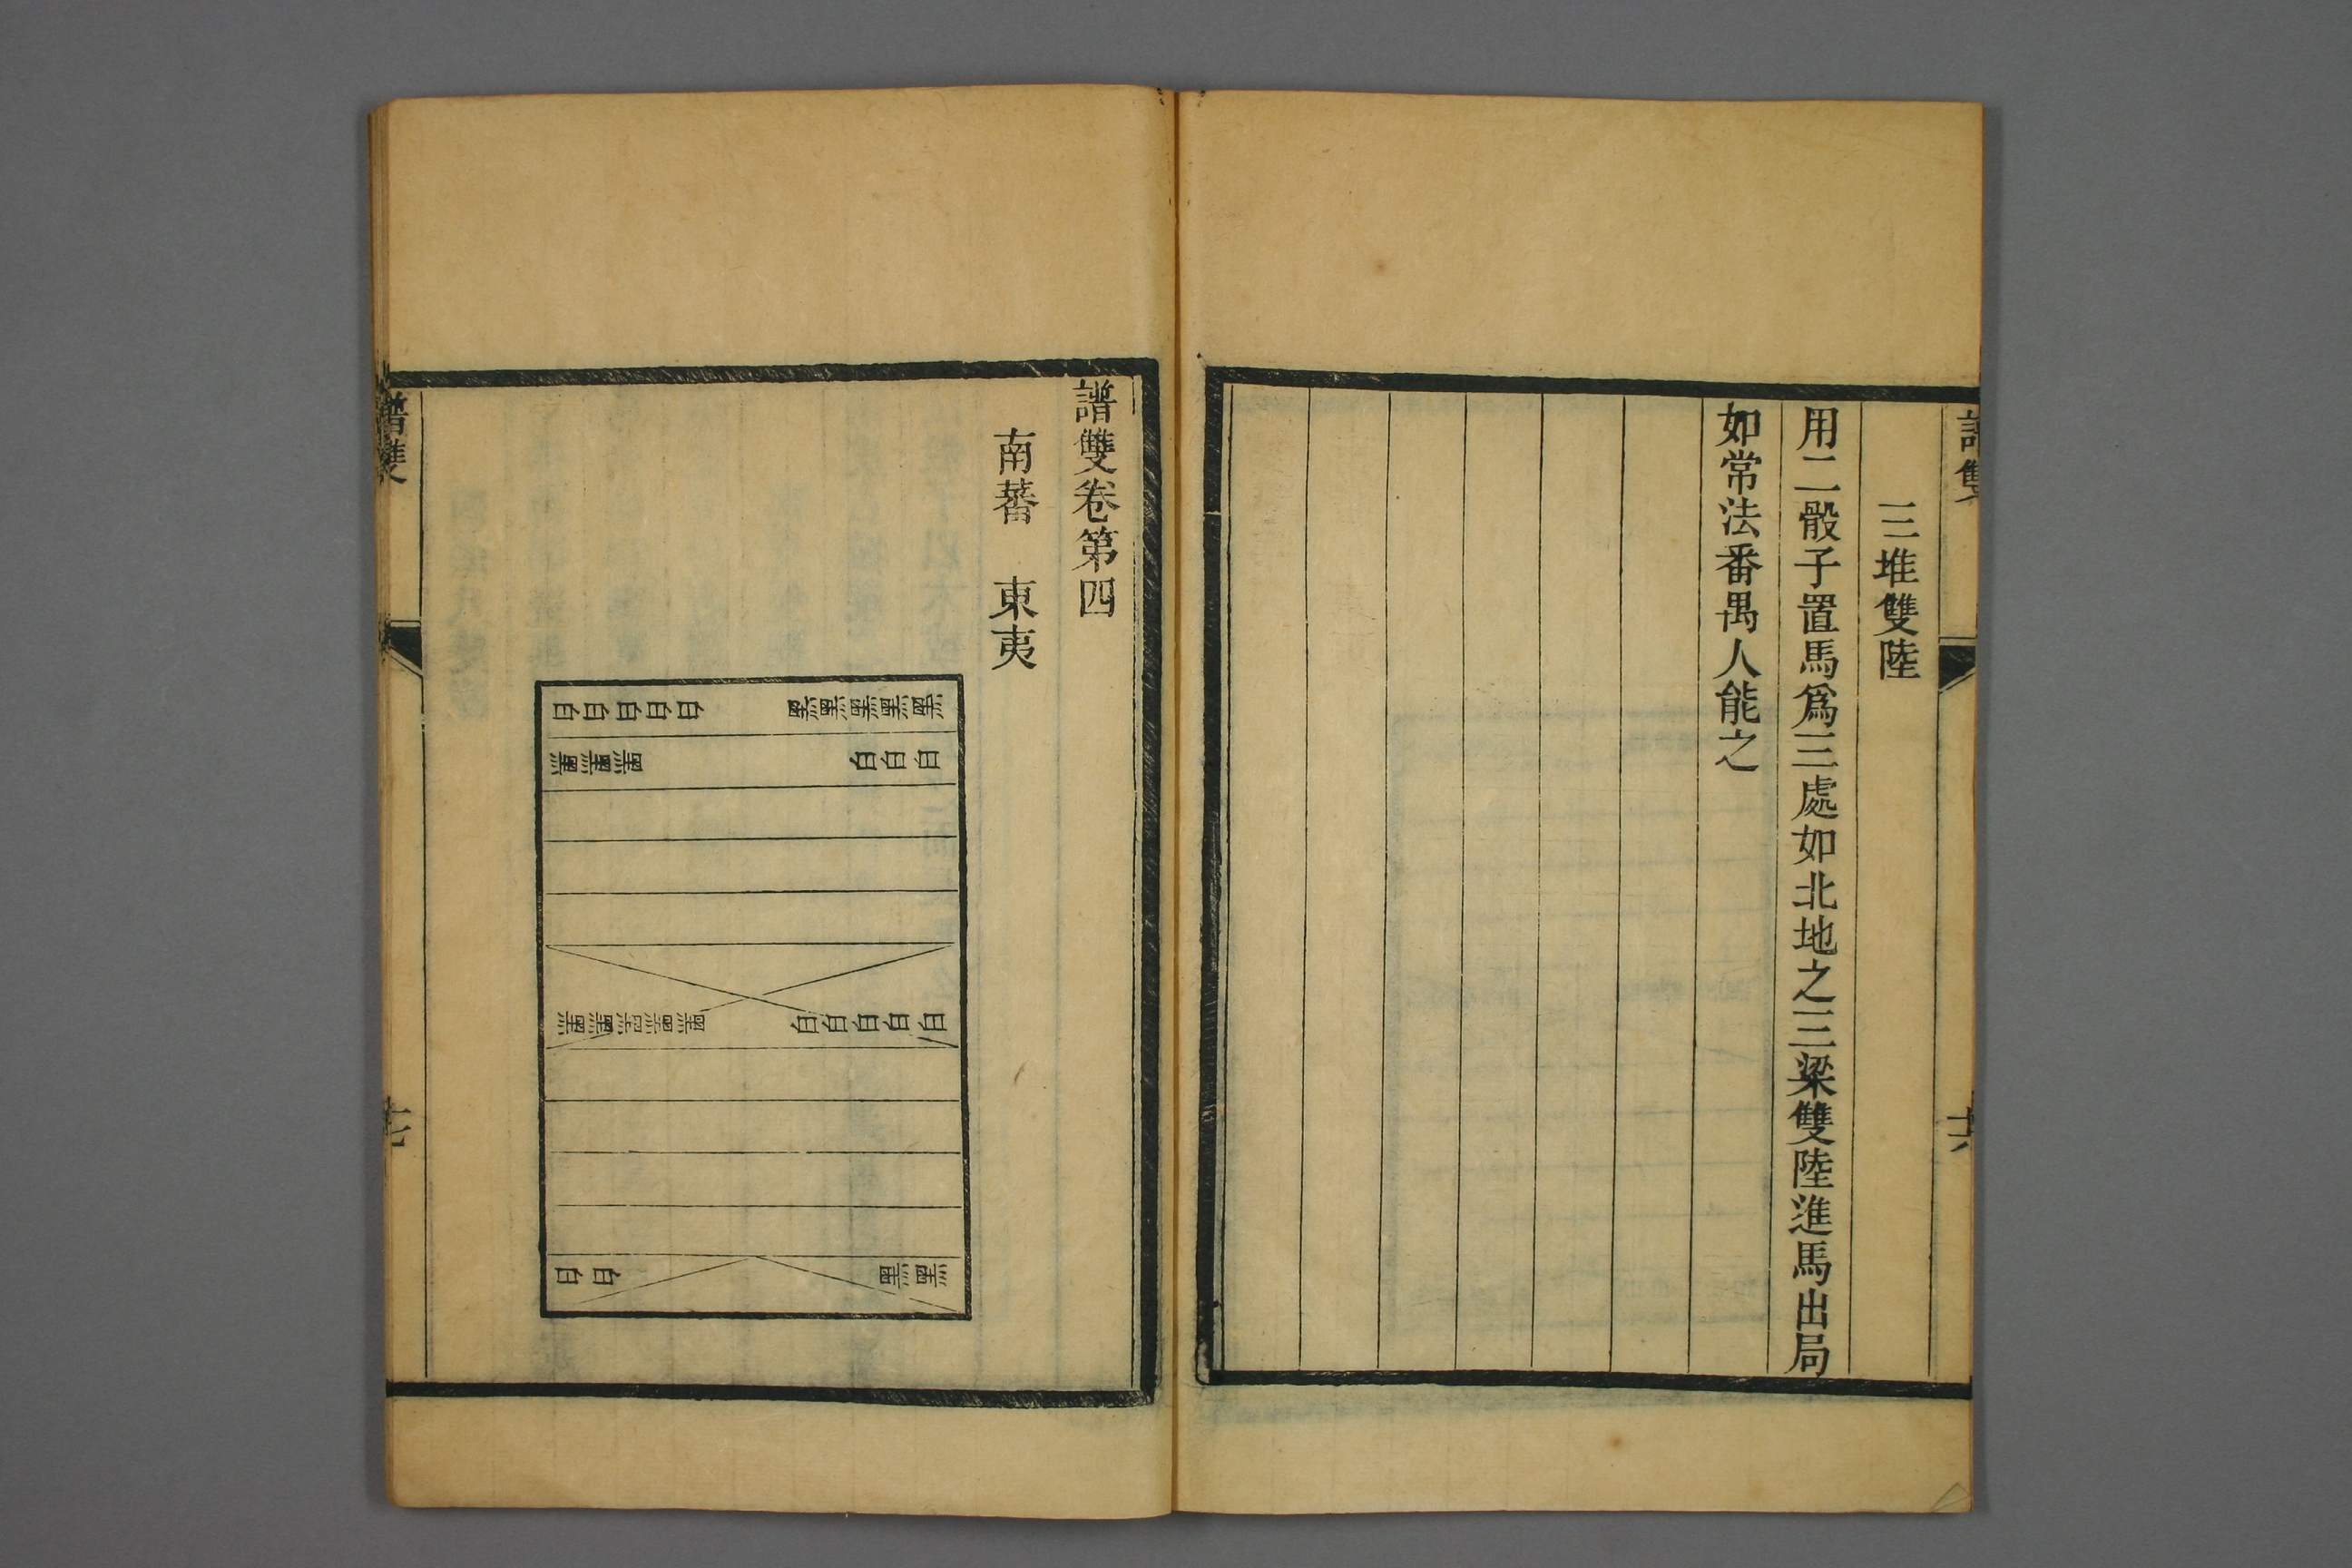 譜雙
十六
三堆雙陸
用二骰子置馬爲三處如北地之三梁雙陸進馬出局
如常法番禺人能之
譜雙卷第四
南蕃　東夷
白白白白白　黑黑黑黑黑
黑黑黑　白白白
黑黑黑黑黑　白白白白白
白白　黑黑
譜雙